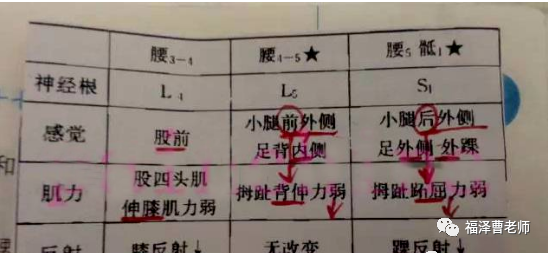 腰3-4 腰4-5★ 腰5 骶1★
神经根 L4 L5 S1
感觉 股前 小腿前外侧 足背内侧 小腿后外侧 足外侧 外踝
肌力 股四头肌 伸膝肌力弱 拇趾背伸力弱 拇趾跖屈力弱
反射 膝反射↓ 无改变 踝反射↓
和
福泽曹老师